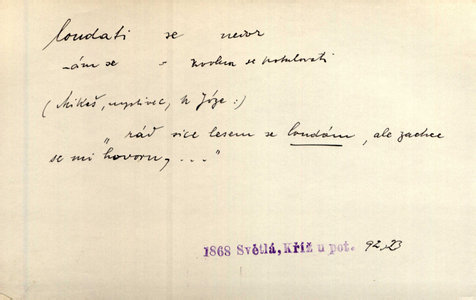 loudati se nedok
-ám se - zvolna se potulovati
(Mikeš, myslivec, k Józe:)
„rád sice lesem se loudám, ale zachce
se mi hovoru, ...“
1868 Světlá, Kříž u pot. 92,23